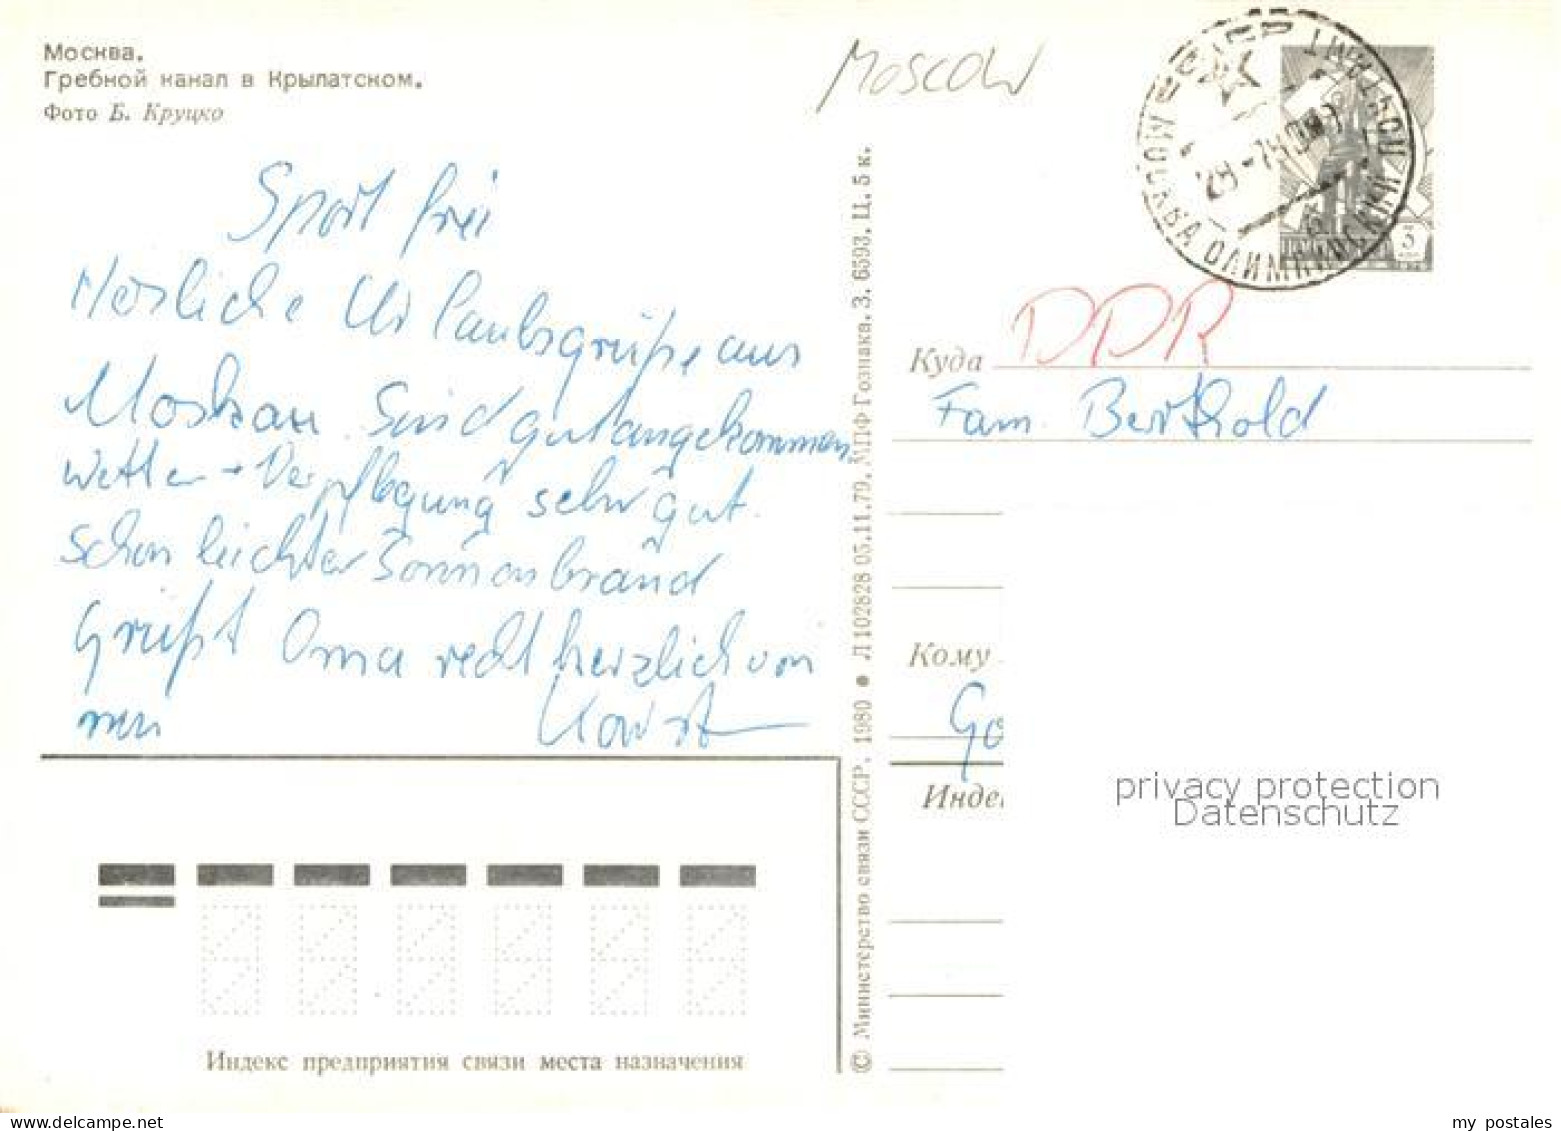 Москва.
Гребной канал в Крылатском.
Фото Б. Круцко
Moscow
Sport frei
Herzliche Urlaubsgrüße aus
Moskau. Sind gut angekommen
Wetter + Verpflegung sehr gut.
Schon leichter Sonnenbrand
Grüßt Oma recht herzlich von
mir Horst
© Министерство связи СССР. 1980 ● Л 102828 05.11.79. МПФ Гознака. З. 6593. Ц. 5 к.
МОСКВА ОЛИМПИЙСКИЙ ПОЧТАМТ
3
Куда DDR
Fam. Berthold
Кому
Go
Инде
privacy protection
Datenschutz
Индекс предприятия связи места назначения
my postales